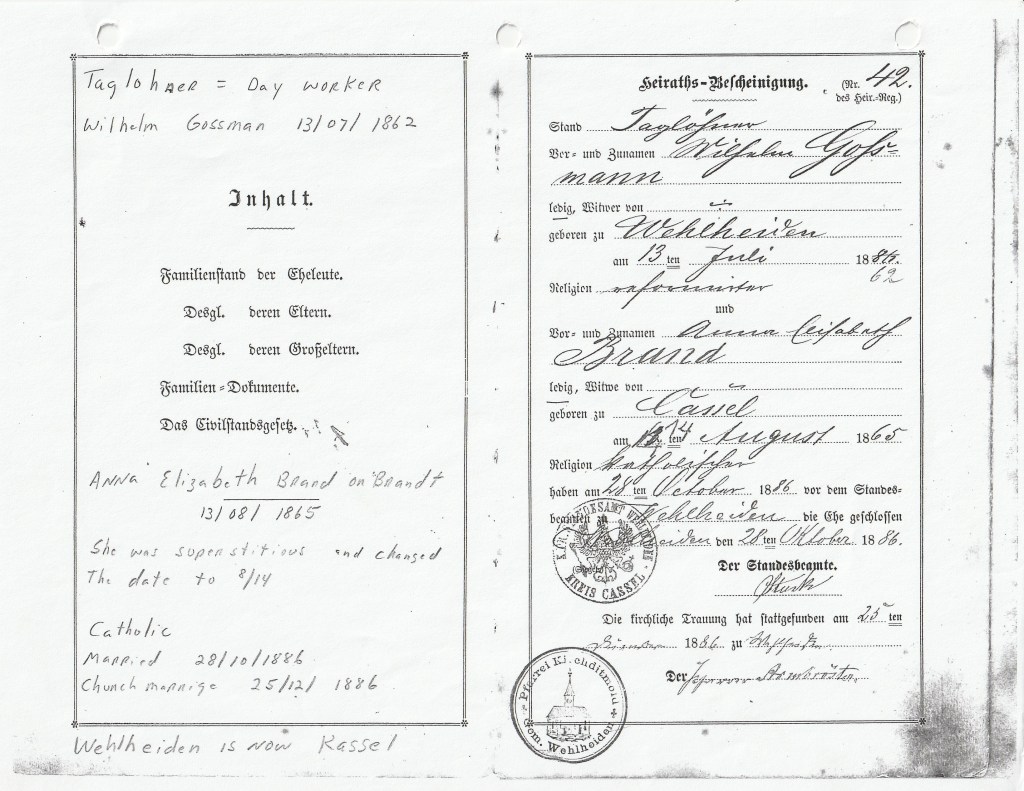 Taglohner = Day worker
Wilhelm Gossman 13/07/1862
Inhalt.
Familienstand der Eheleute.
Desgl. deren Eltern.
Desgl. deren Großeltern.
Familien-Dokumente.
Das Civilstandsgesetz.
Anna Elizabeth Brand or Brandt
13/08/1865
She was superstitious and changed
The date to 8/14
Catholic
Married 28/10/1886
Church marrige 25/12/1886
Wehlheiden is now Kassel
Heiraths-Bescheinigung. (Nr. 42.
des Heir.-Reg.)
Stand Taglöhner
Vor- und Zunamen Wilhelm Goß-
mann
ledig, Witwer von
geboren zu Wehlheiden
am 13 ten Juli 18
62
Religion reformirter
und
Vor- und Zunamen Anna Elisabeth
Brand
ledig, Witwe von
geboren zu Cassel
am 14 ten August 1865
Religion katholischer
haben am 28 ten October 1886 vor dem Standes-
beamten zu Wehlheiden die Ehe geschlossen
Wehlheiden den 28 ten Oktober 1886.
STANDESAMT WEHLHEIDEN
KREIS CASSEL
Der Standesbeamte.
Die kirchliche Trauung hat stattgefunden am 25 ten
1886 zu Wehlheiden
Der Pfarrer
Pfarrei Kirchditmold
Gem. Wehlheiden